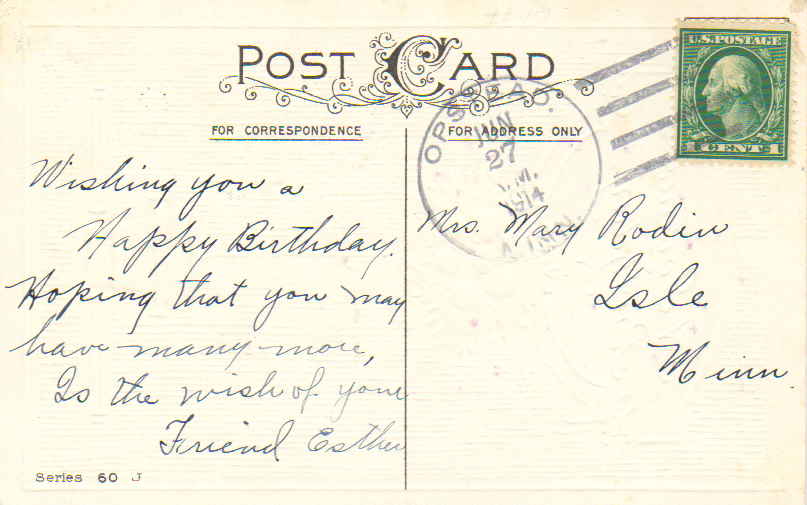 POST CARD
FOR CORRESPONDENCE
FOR ADDRESS ONLY
U.S. POSTAGE
OPSTEAD,
JUN
27
.M.
1914
MINN.
Wishing you a
Happy Birthday.
Hoping that you may
have many more,
Is the wish of your
Friend Esther
Mrs. Mary Rodin
Isle
Minn.
Series 60 J